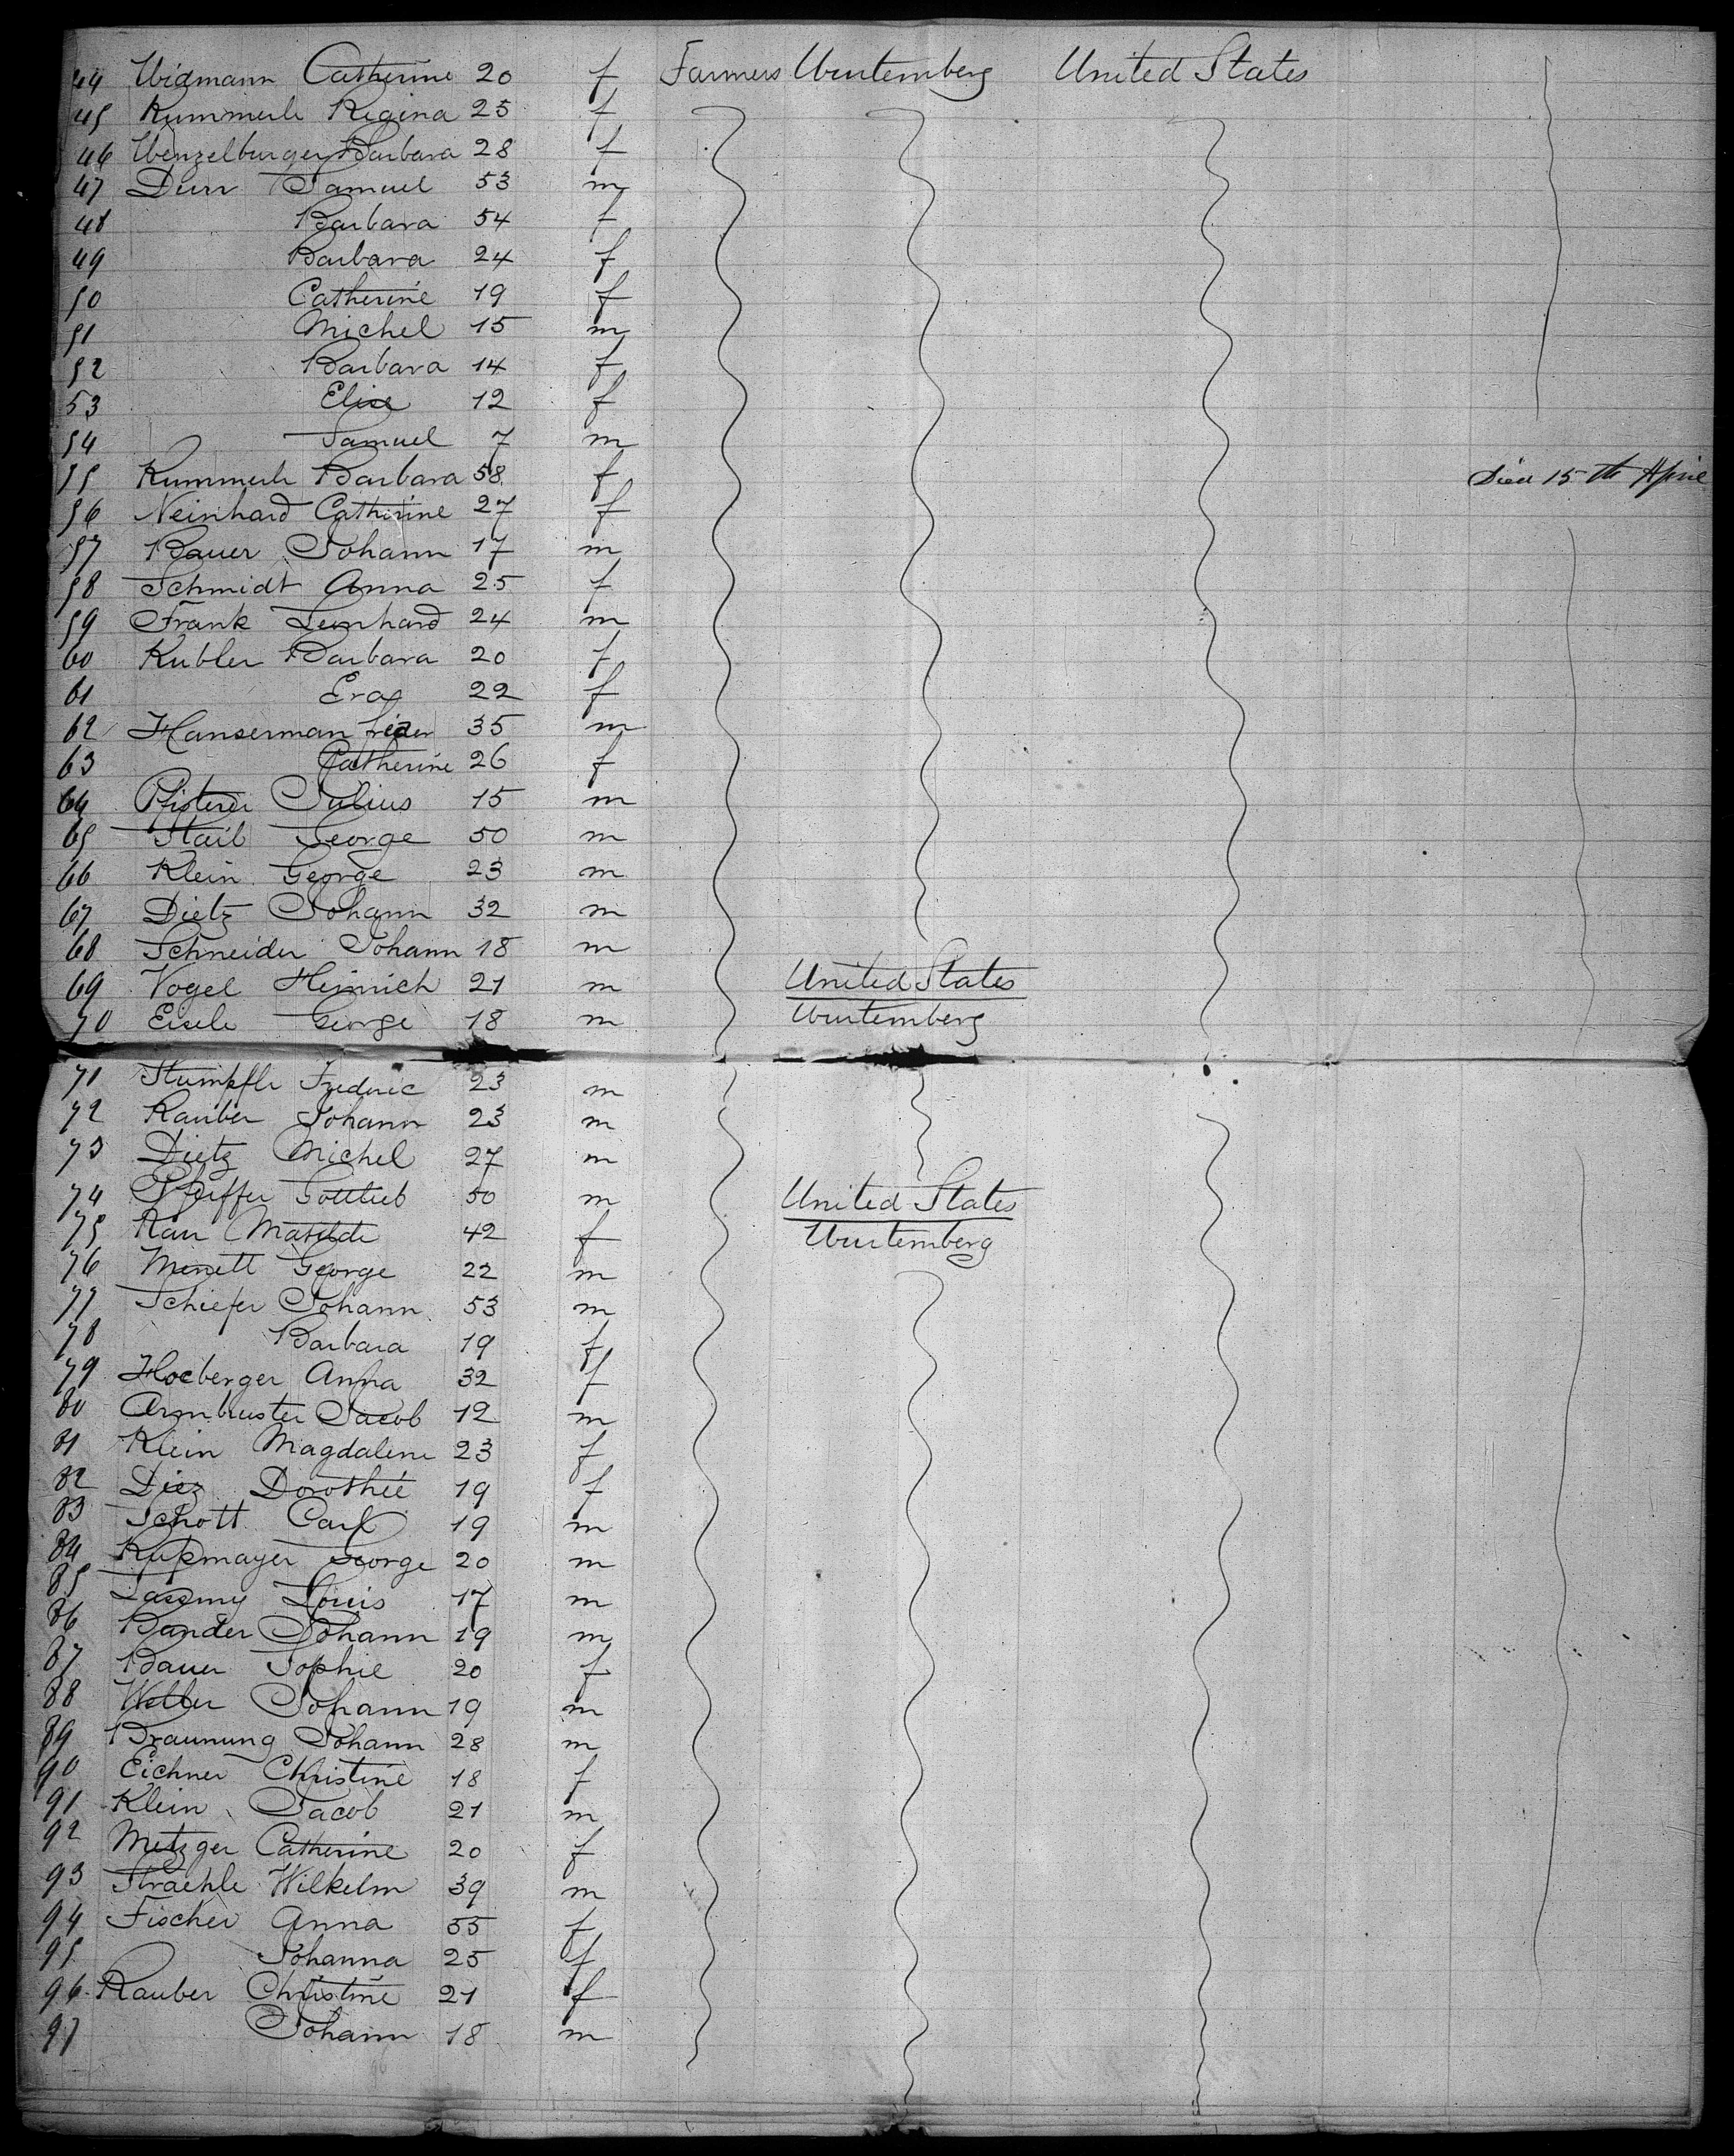 44 Widmann Catherine 20 f Farmers Wurtemberg United States
45 Kummerle Regina 25 f
46 Wenzelburger Barbara 28 f
47 Durr Samuel 53 m
48 Barbara 54 f
49 Barbara 24 f
50 Catherine 19 f
51 Michel 15 m
52 Barbara 14 f
53 Elise 12 f
54 Samuel 7 m
55 Kummerle Barbara 58 f Died 15th April
56 Neinhard Catherine 27 f
57 Bauer Johann 17 m
58 Schmidt Anna 25 f
59 Frank Leonhard 24 m
60 Kubler Barbara 20 f
61 Eva 22 f
62 Hanserman 35 m
63 Catherine 26 f
64 Pfisterer Julius 15 m
65 Staib George 50 m
66 Klein George 23 m
67 Dietz Johann 32 m
68 Schneider Johann 18 m
69 Vogel Heinrich 21 m United States
70 Eisele George 18 m Wurtemberg
71 Stumpfle Frederic 23 m
72 Rauber Johann 23 m
73 Dietz Michel 27 m
74 Pfeiffer Gottlieb 50 m United States
75 Rau Matilde 42 f Wurtemberg
76 Minett George 22 m
77 Schiefer Johann 53 m
78 Barbara 19 f
79 Hocberger Anna 32 f
80 Armbruster Jacob 12 m
81 Klein Magdalene 23 f
82 Diez Dorothée 19 f
83 Schott Carl 19 m
84 Rupmayer George 20 m
85 Louis 17 m
86 Bander Johann 19 m
87 Bauer Sophie 20 f
88 Weller Johann 19 m
89 Braunung Johann 28 m
90 Eichner Christine 18 f
91 Klein Jacob 21 m
92 Metzger Catherine 20 f
93 Straehle Wilhelm 39 m
94 Fischer Anna 55 f
95 Johanna 25 f
96 Rauber Christine 21 f
97 Johann 18 m